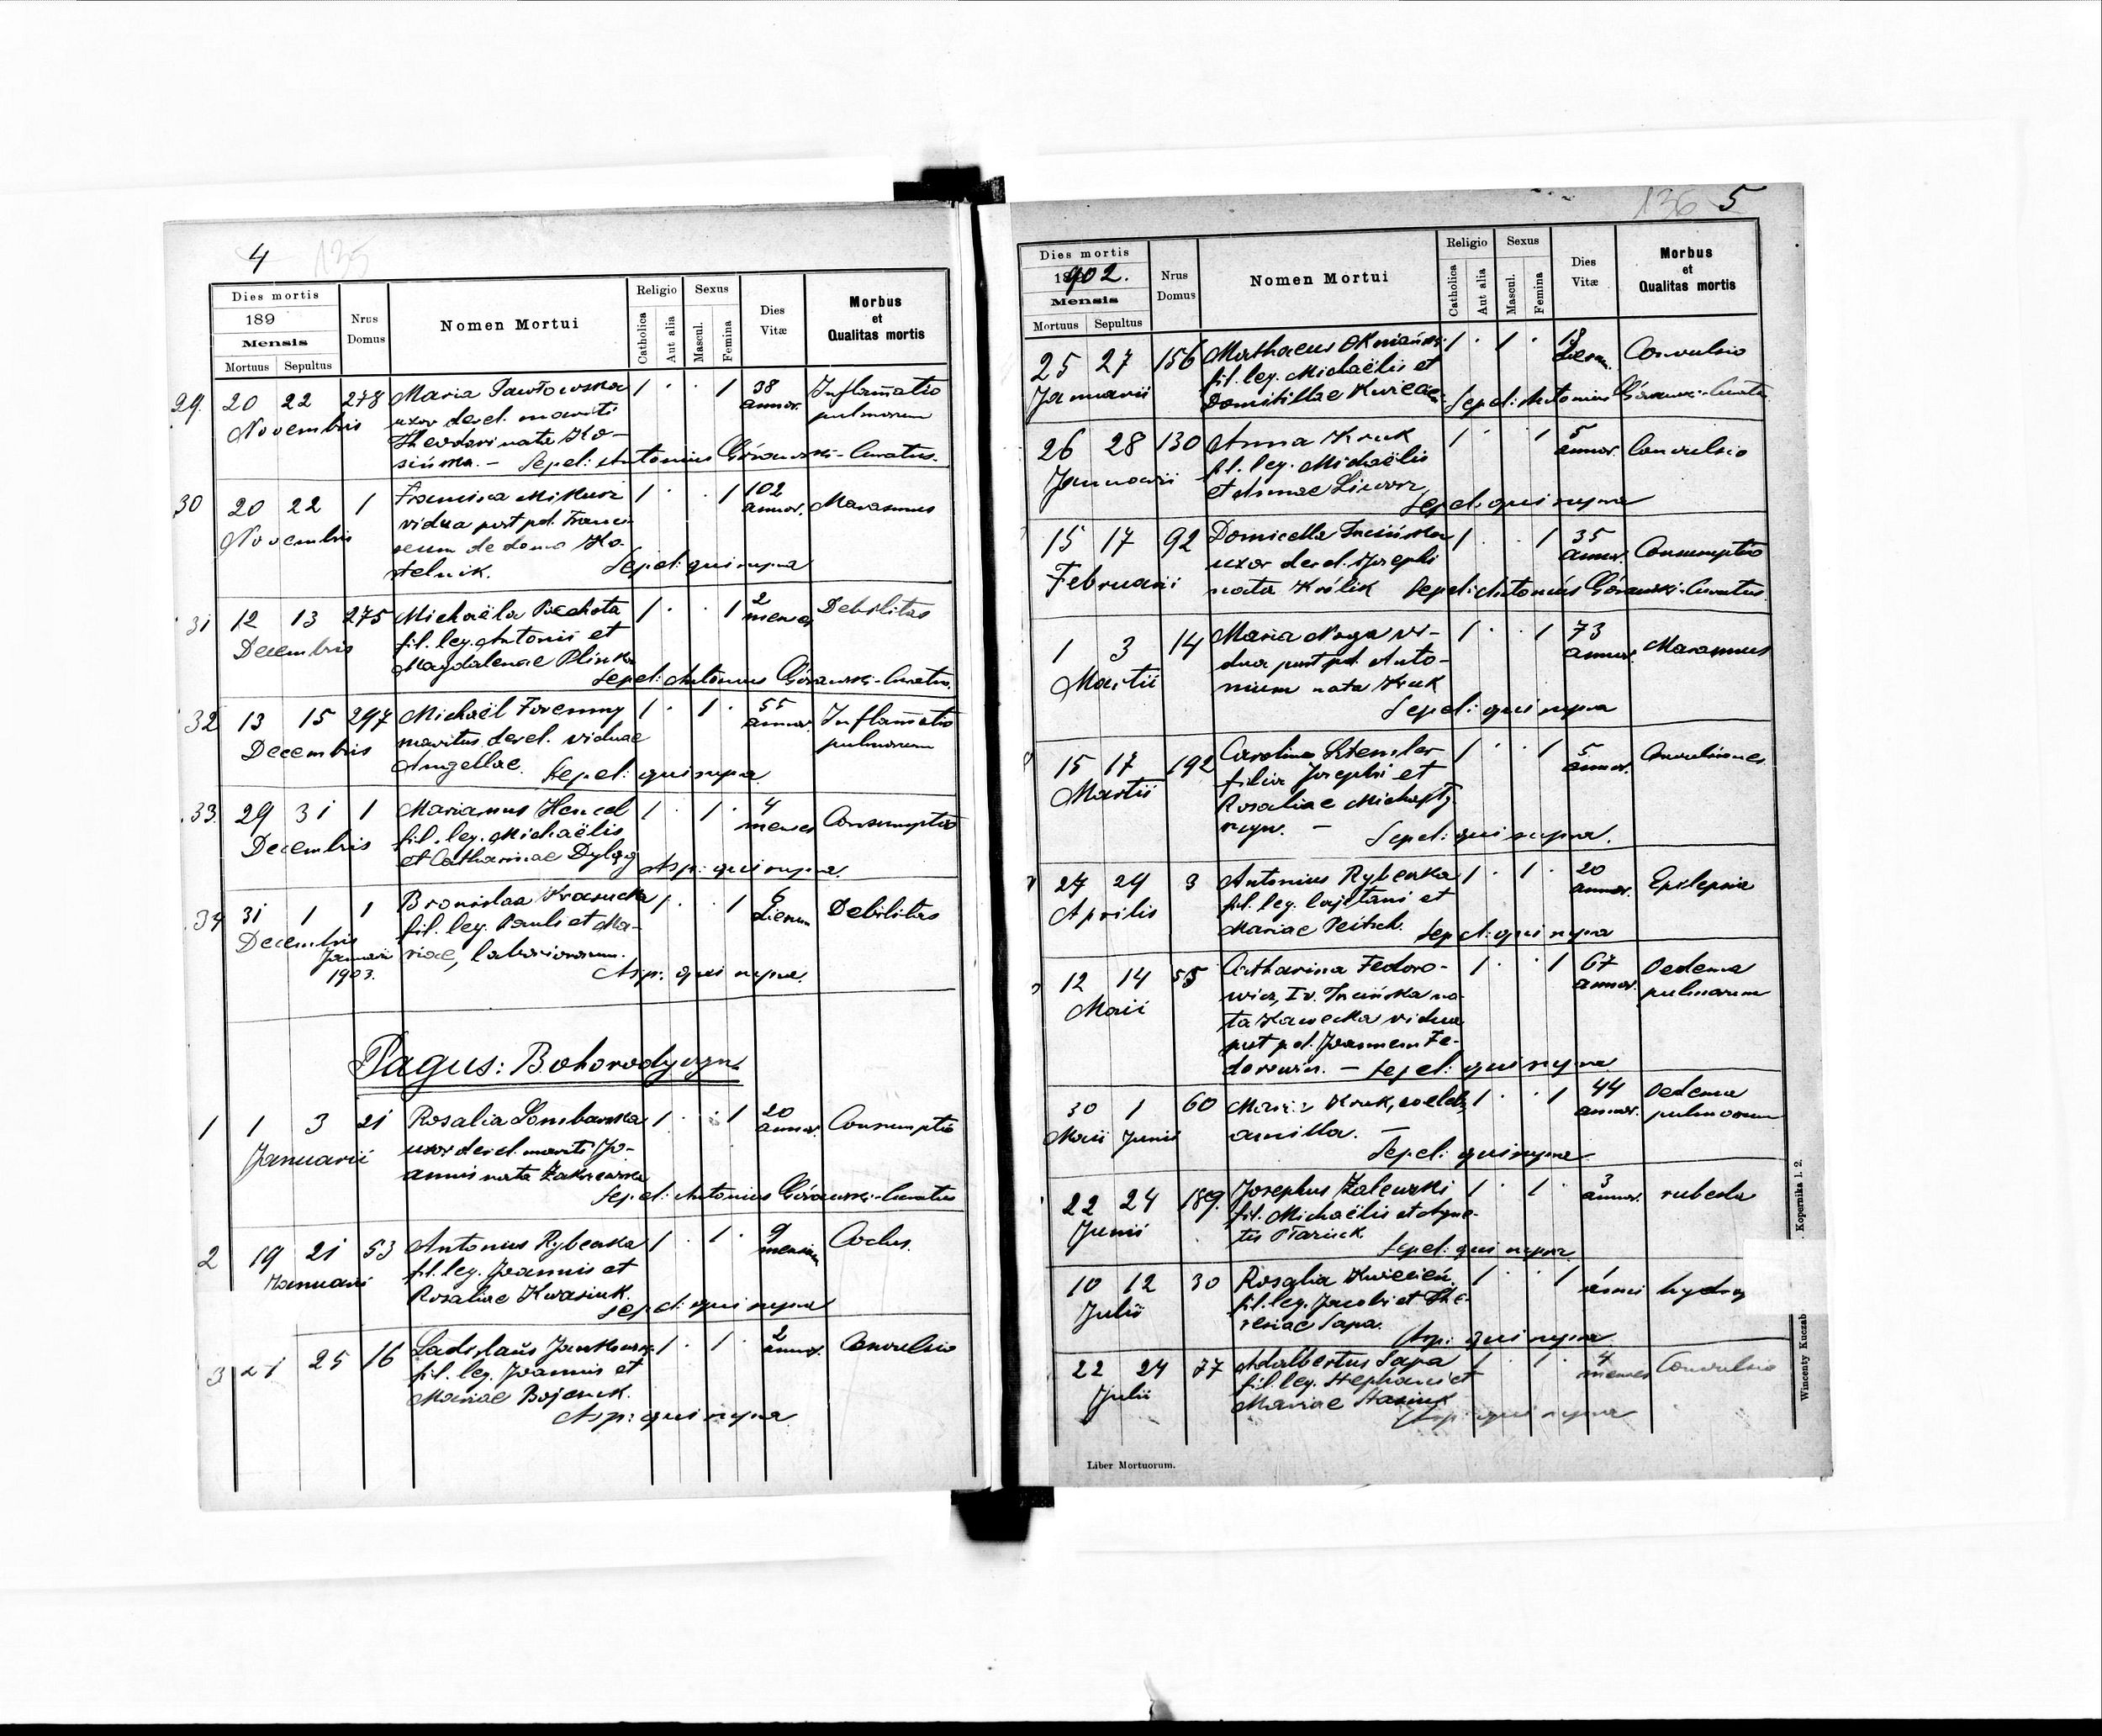 4 135
Dies mortis
189
Mensis
Mortuus Sepultus
Nrus Domus
Nomen Mortui
Religio
Catholica Aut alia
Sexus
Mascul. Femina
Dies Vitæ
Morbus et Qualitas mortis
29. 20 22 278 Maria Pawłowska 1 · · 1 38 Inflam̄atio
Novembris uxor derel. mariti annor. pulmorum
Theodori nata Ko-
sińska. — Sepel: Antonius Górawski - Curatus.
30 20 22 1 Francisca Mikusz 1 · · 1 102 Marasmus
Novembris vidua post pd. Franci annor.
scum de domo Ko-
stelnik. Sepel: qui supra
31 12 13 275 Michaëla Pochota 1 · · 1 2 Debilitas
Decembris fil. leg. Antonii et menses
Magdalenae Plinka
Sepel: Antonius Górawski - Curatus.
32 13 15 297 Michaël Foremny 1 · 1 · 55 Inflam̄atio
Decembris maritus derel. viduae annor. pulmorum
Angellae. Sepel: qui supra
33. 29 31 1 Marianus Hencel 1 · 1 · 4 Consumptio
Decembris fil. leg. Michaëlis menses
et Catharinae Dyląg Asp: qui supra.
34 31 1 1 Bronislaa Krasucka 1 · · 1 6 Debilitas
Decembris fil. leg. Pauli et Ma- dierum
Januarii riae, laboriosorum.
1903. Asp: qui supra.
Pagus: Bohorodyczyn.
1 1 3 21 Rosalia Dombawska 1 · · 1 20 Consumptio
Januarii uxor derel. mariti Jo- annor.
annis nata Zakrzewska
Sepel: Antonius Górawski - Curatus
2 19 21 53 Antonius Rybenka 1 · 1 · 9
Januarii fil. leg. Joannis et mensium
Rosaliae Kwasiuk.
Sepel: qui supra
3 25 16 Ladislaus 1 · 1 · 2 Convulsio
fil. leg. Joannis et annor.
Mariae Bojczuk.
Asp: qui supra
136 5
Dies mortis
1902.
Mensis
Mortuus Sepultus
Nrus Domus
Nomen Mortui
Religio
Catholica Aut alia
Sexus
Mascul. Femina
Dies Vitæ
Morbus et Qualitas mortis
25 27 156 Mathaeus 1 · 1 · 18 Convulsio
Januarii fil. leg. Michaëlis et dierum
Domitillae Kwiecień Sepel: Antonius Górawski - Curatus
26 28 130 Anna Kruk 1 · · 1 5 Convulsio
Januarii fil. leg. Michaëlis annor.
et Annae
Sepel: qui supra
15 17 92 Domicella Trcińska 1 · · 1 35 Consumptio
Februarii uxor derel. Josephi annor.
nata Królik Sepel: Antonius Górawski - Curatus.
1 3 14 Maria Noga vi- 1 · · 1 73 Marasmus
Martii dua post pd. Anto- annor.
nium nata Kruk
Sepel: qui supra
15 17 192 Carolina Sztemler 1 · · 1 5 Convulsiones
Martii filia Josephi et annor.
Rosaliae
Sepel: qui supra.
27 29 3 Antonius Rybenka 1 · 1 · 20 Epilepsia
Aprilis fil. leg. Cajetani et annor.
Mariae Peitsch. Sepel: qui supra
12 14 55 Catharina Fedoro- 1 · · 1 67 Oedema
Maii wicz, Iv. Trcińska na- annor. pulmorum
ta Kawecka vidua
post pd. Joannem Fe-
dorowicz. — Sepel: qui supra
30 1 60 Maria Kruk, coelebs, 1 · · 1 44 Oedema
Maii Junii ancilla. — annor. pulmorum
Sepel: qui supra
22 24 189. Josephus Zalewski 1 · 1 · 3 rubeola
Junii fil. Michaëlis et Agne- annor.
tis
Sepel: qui supra
10 12 30 Rosalia Kwiecień. 1 · · 1 1
Julii fil. leg. Jacobi et The- anni
resiae Sapa.
Asp: qui supra
22 24 77 Adalbertus Sapa 1 · 1 · 4 Convulsio
Julii fil. leg. Stephani et menses
Mariae Stasiuk
Asp: qui supra
Liber Mortuorum.
Wincenty Kuczab Kopernika l. 2.